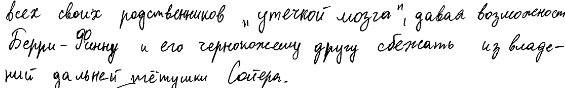 всех своих родственников "утечкой мозга", давая возможност
Берри-Финну и его чернокожему другу сбежать из владе-
ний дальней тётушки Сойера.